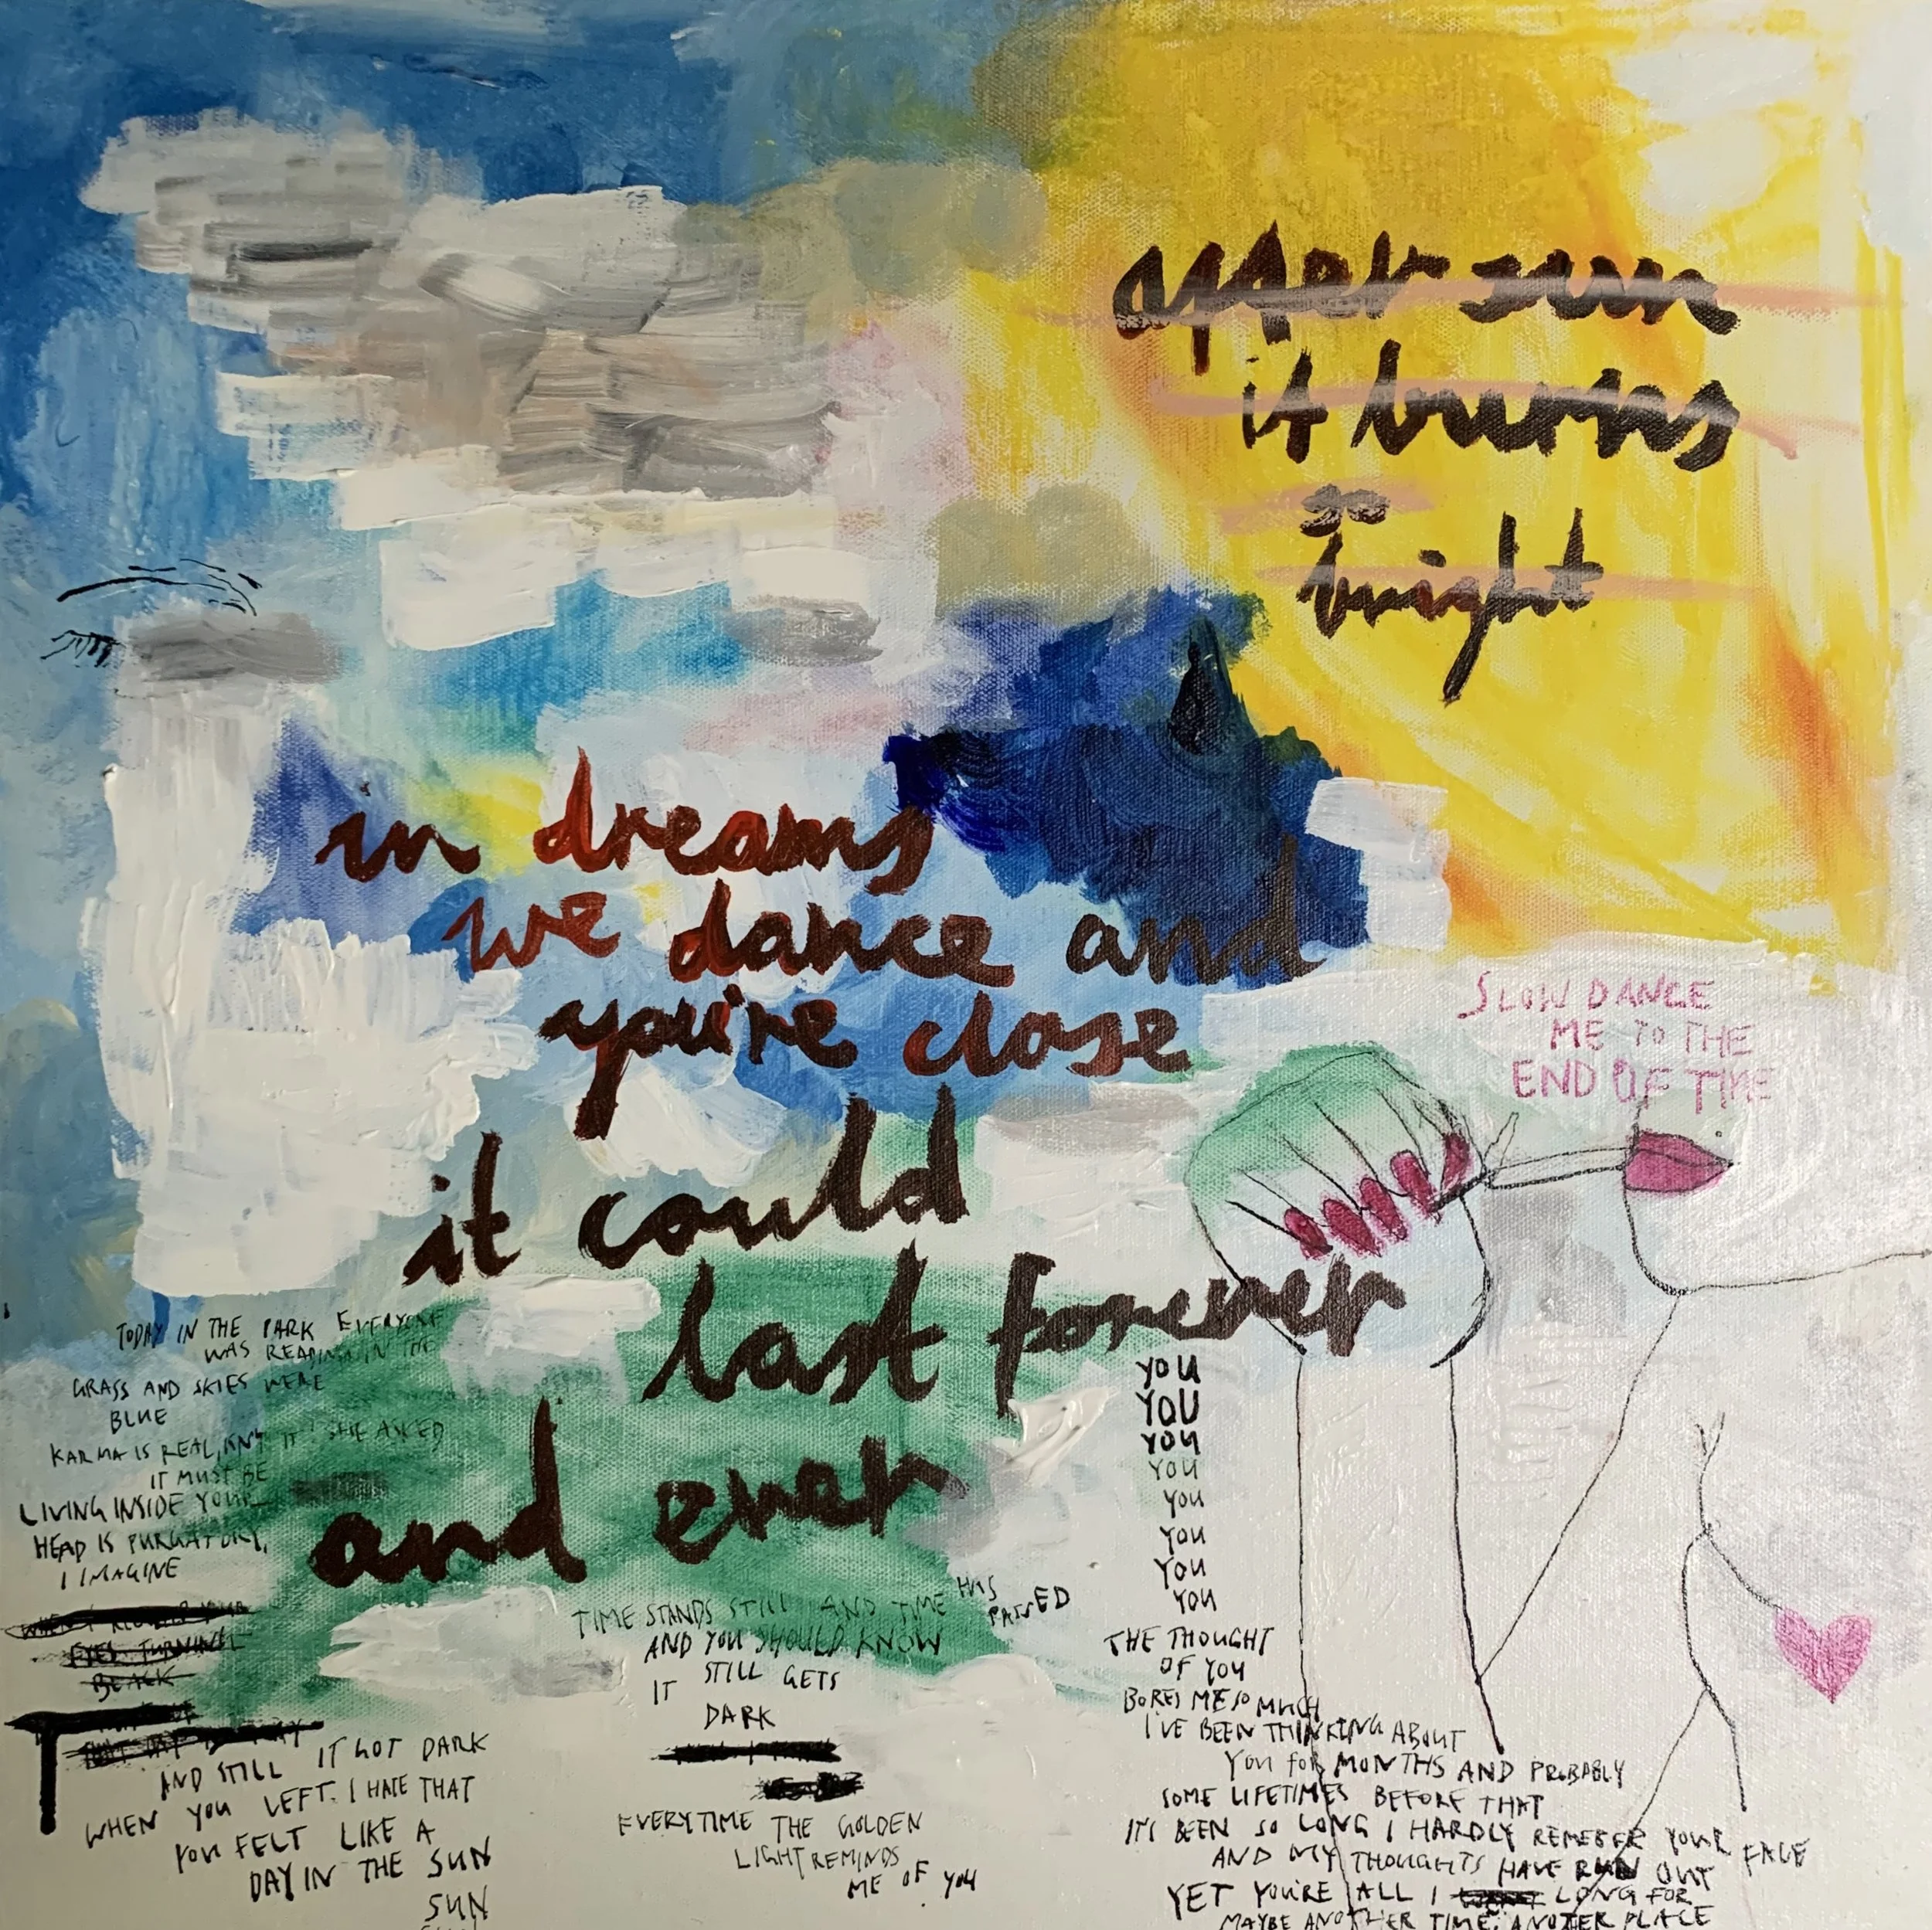 after sun
it burns
so
bright
in dreams
we dance and
you're close
it could
last forever
and ever
SLOW DANCE
ME TO THE
END OF TIME
TODAY IN THE PARK EVERYONE
WAS READING IN THE
GRASS AND SKIES WERE
BLUE
KARMA IS REAL, ISN'T IT SHE ASKED
IT MUST BE
LIVING INSIDE YOUR
HEAD IS PURGATORY,
I IMAGINE
EYES TURNING
BLACK
AND STILL IT GOT DARK
WHEN YOU LEFT. I HATE THAT
YOU FELT LIKE A
DAY IN THE SUN
SUN
TIME STANDS STILL AND TIME HAS
PASSED
AND YOU SHOULD KNOW
IT STILL GETS
DARK
EVERYTIME THE GOLDEN
LIGHT REMINDS
ME OF YOU
YOU
YOU
YOU
YOU
YOU
YOU
YOU
YOU
THE THOUGHT
OF YOU
BORES ME SO MUCH
I'VE BEEN THINKING ABOUT
YOU FOR MONTHS AND PROBABLY
SOME LIFETIMES BEFORE THAT
IT'S BEEN SO LONG I HARDLY REMEBER YOUR FACE
AND MY THOUGHTS HAVE RUN OUT
YET YOU'RE ALL I LONG FOR
MAYBE ANOTHER TIME, ANOTER PLACE